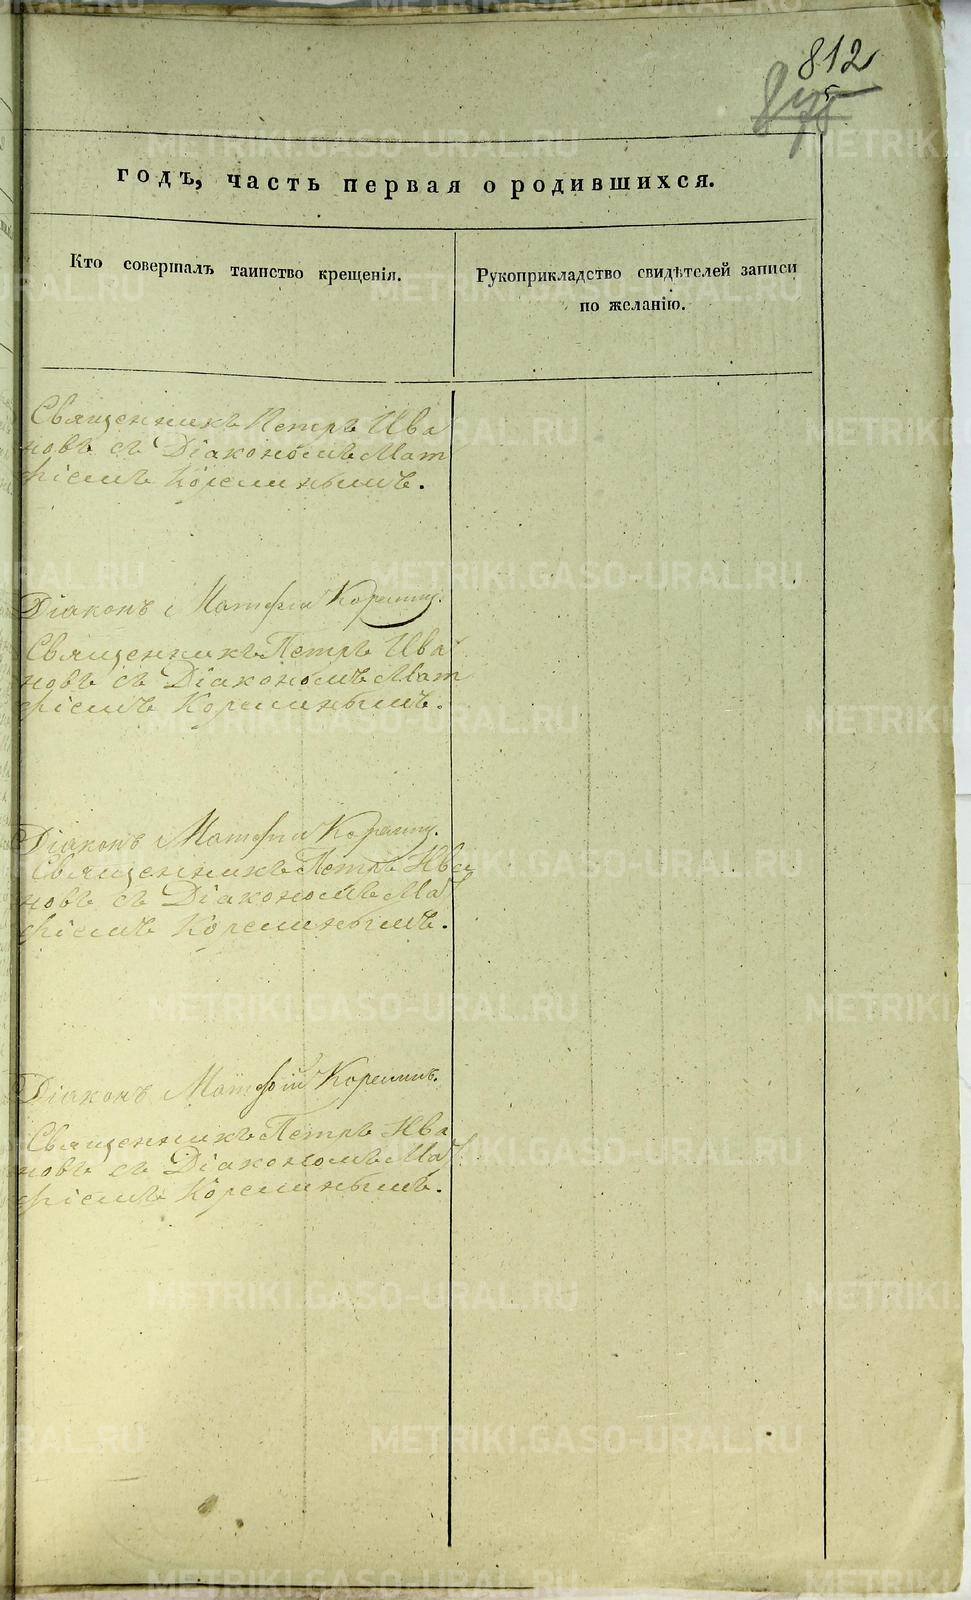 812
годъ, часть первая о родившихся.
Кто совершалъ таинство крещенія.
Рукоприкладство свидѣтелей записи
по желанію.
Священникъ Петръ Ива
новъ съ Діакономъ Мат
фіемъ Кореминымъ.
Діаконъ Матфій Кореминъ.
Священникъ Петръ Ива
новъ съ Діакономъ Мат
фіемъ Кореминымъ.
Діаконъ Матфій Кореминъ.
Священникъ Петръ Ива
новъ съ Діакономъ Мат
фіемъ Кореминымъ.
Діаконъ Матфій Кореминъ.
Священникъ Петръ Ива
новъ съ Діакономъ Мат
фіемъ Кореминымъ.
METRIKI.GASO-URAL.RU